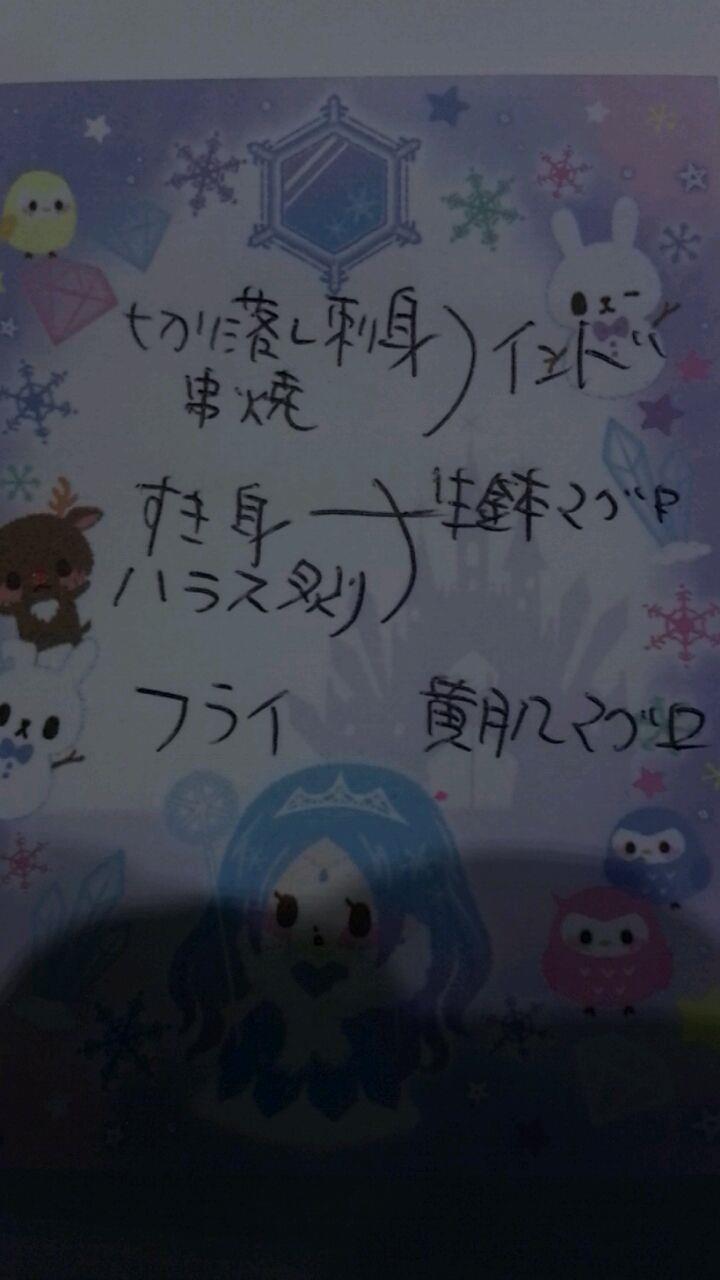 切り落し刺身 ) インド
串焼
すき身 ― 生鉢マグロ
ハラス炙り
フライ 黄肌マグロ